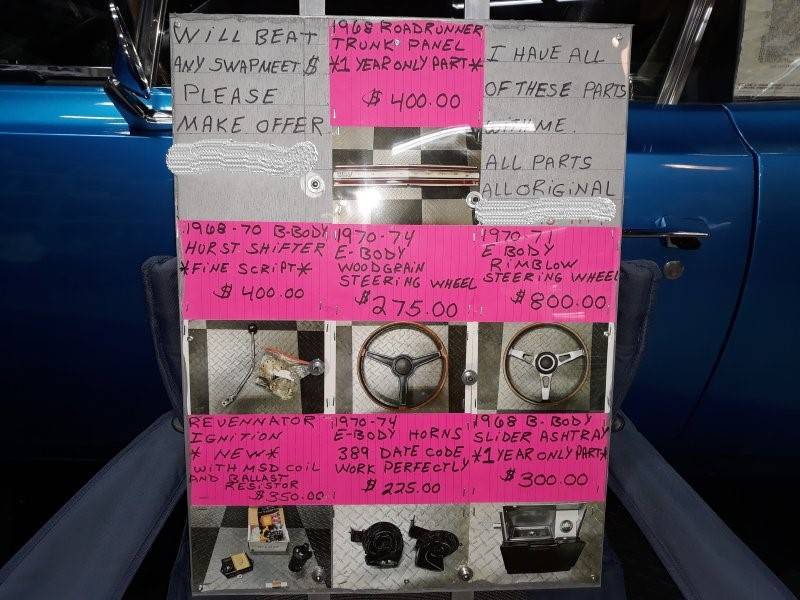 WILL BEAT
ANY SWAPMEET $
PLEASE
MAKE OFFER
1968 ROADRUNNER
TRUNK PANEL
*1 YEAR ONLY PART*
$400.00
I HAVE ALL
OF THESE PARTS
WITH ME.
ALL PARTS
ALL ORIGINAL
1968-70 B-BODY
HURST SHIFTER
*FINE SCRIPT*
$400.00
1970-74
E-BODY
WOODGRAIN
STEERING WHEEL
$275.00
1970-71
E BODY
RIMBLOW
STEERING WHEEL
$800.00
REVENNATOR
IGNITION
*NEW*
WITH MSD COIL
AND BALLAST
RESISTOR
$350.00
1970-74
E-BODY HORNS
389 DATE CODE
WORK PERFECTLY
$225.00
1968 B-BODY
SLIDER ASHTRAY
*1 YEAR ONLY PART*
$300.00